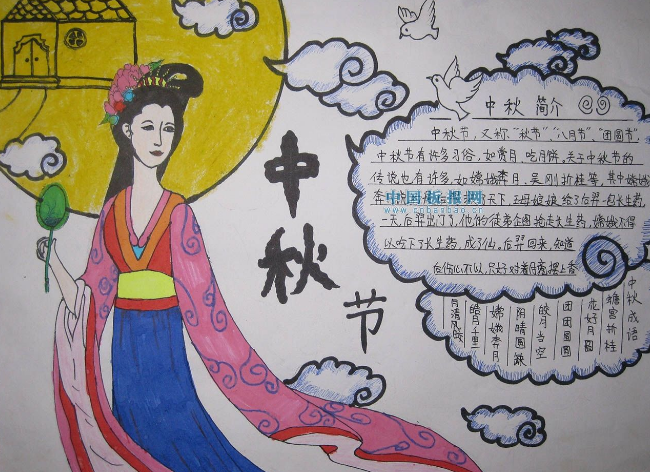 中
秋
节
中秋简介
中秋节，又称"秋节"、"八月节"、"团圆节"
中秋节有许多习俗，如赏月、吃月饼。关于中秋节的
传说也有许多，如嫦娥奔月，吴刚折桂等，其中嫦娥
奔 天下，王母娘娘给了后羿一包长生药，
一天，后羿出门了，他的徒弟企图抢走长生药，嫦娥不得
以吃下了长生药，成了仙。后羿回来，知道
后伤心不以，只好对着月亮摆上香
中国板报网
www.cnbanbao.cn
中秋成语
蟾宫折桂
花好月圆
团团圆圆
皓月当空
阴晴圆缺
嫦娥奔月
皓月千里
月清风